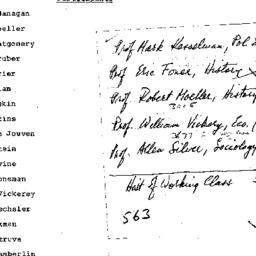 Managan
oeller
ntgomery
ruber
rier
lan
gkin
zins
e Jouven
tein
vine
oneman
Vickerey
echsler
kman
truve
amberlin
Prof Mark Kesselman, Pol
Prof Eric Foner, History
Prof. Robert Moeller, History
Prof. William Vickery, Eco.
Prof. Allen Silver, Sociology
Hist of Working Class
563